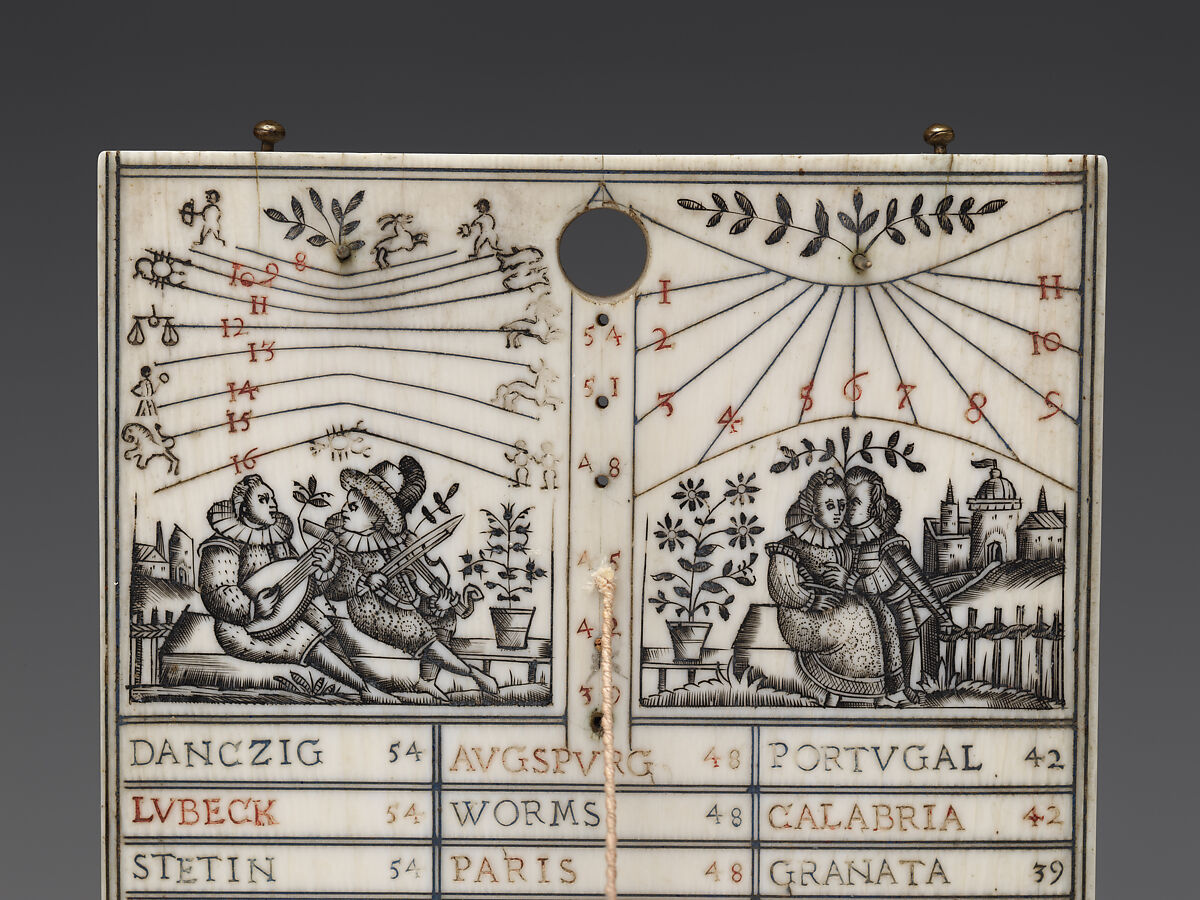 8
10 9
11
12
13
14
15
16
54
51
48
45
42
39
1
2
3
4
5
6
7
8
9
10
11
DANCZIG 54
AVGSPVRG 48
PORTVGAL 42
LVBECK 54
WORMS 48
CALABRIA 42
STETIN 54
PARIS 48
GRANATA 39